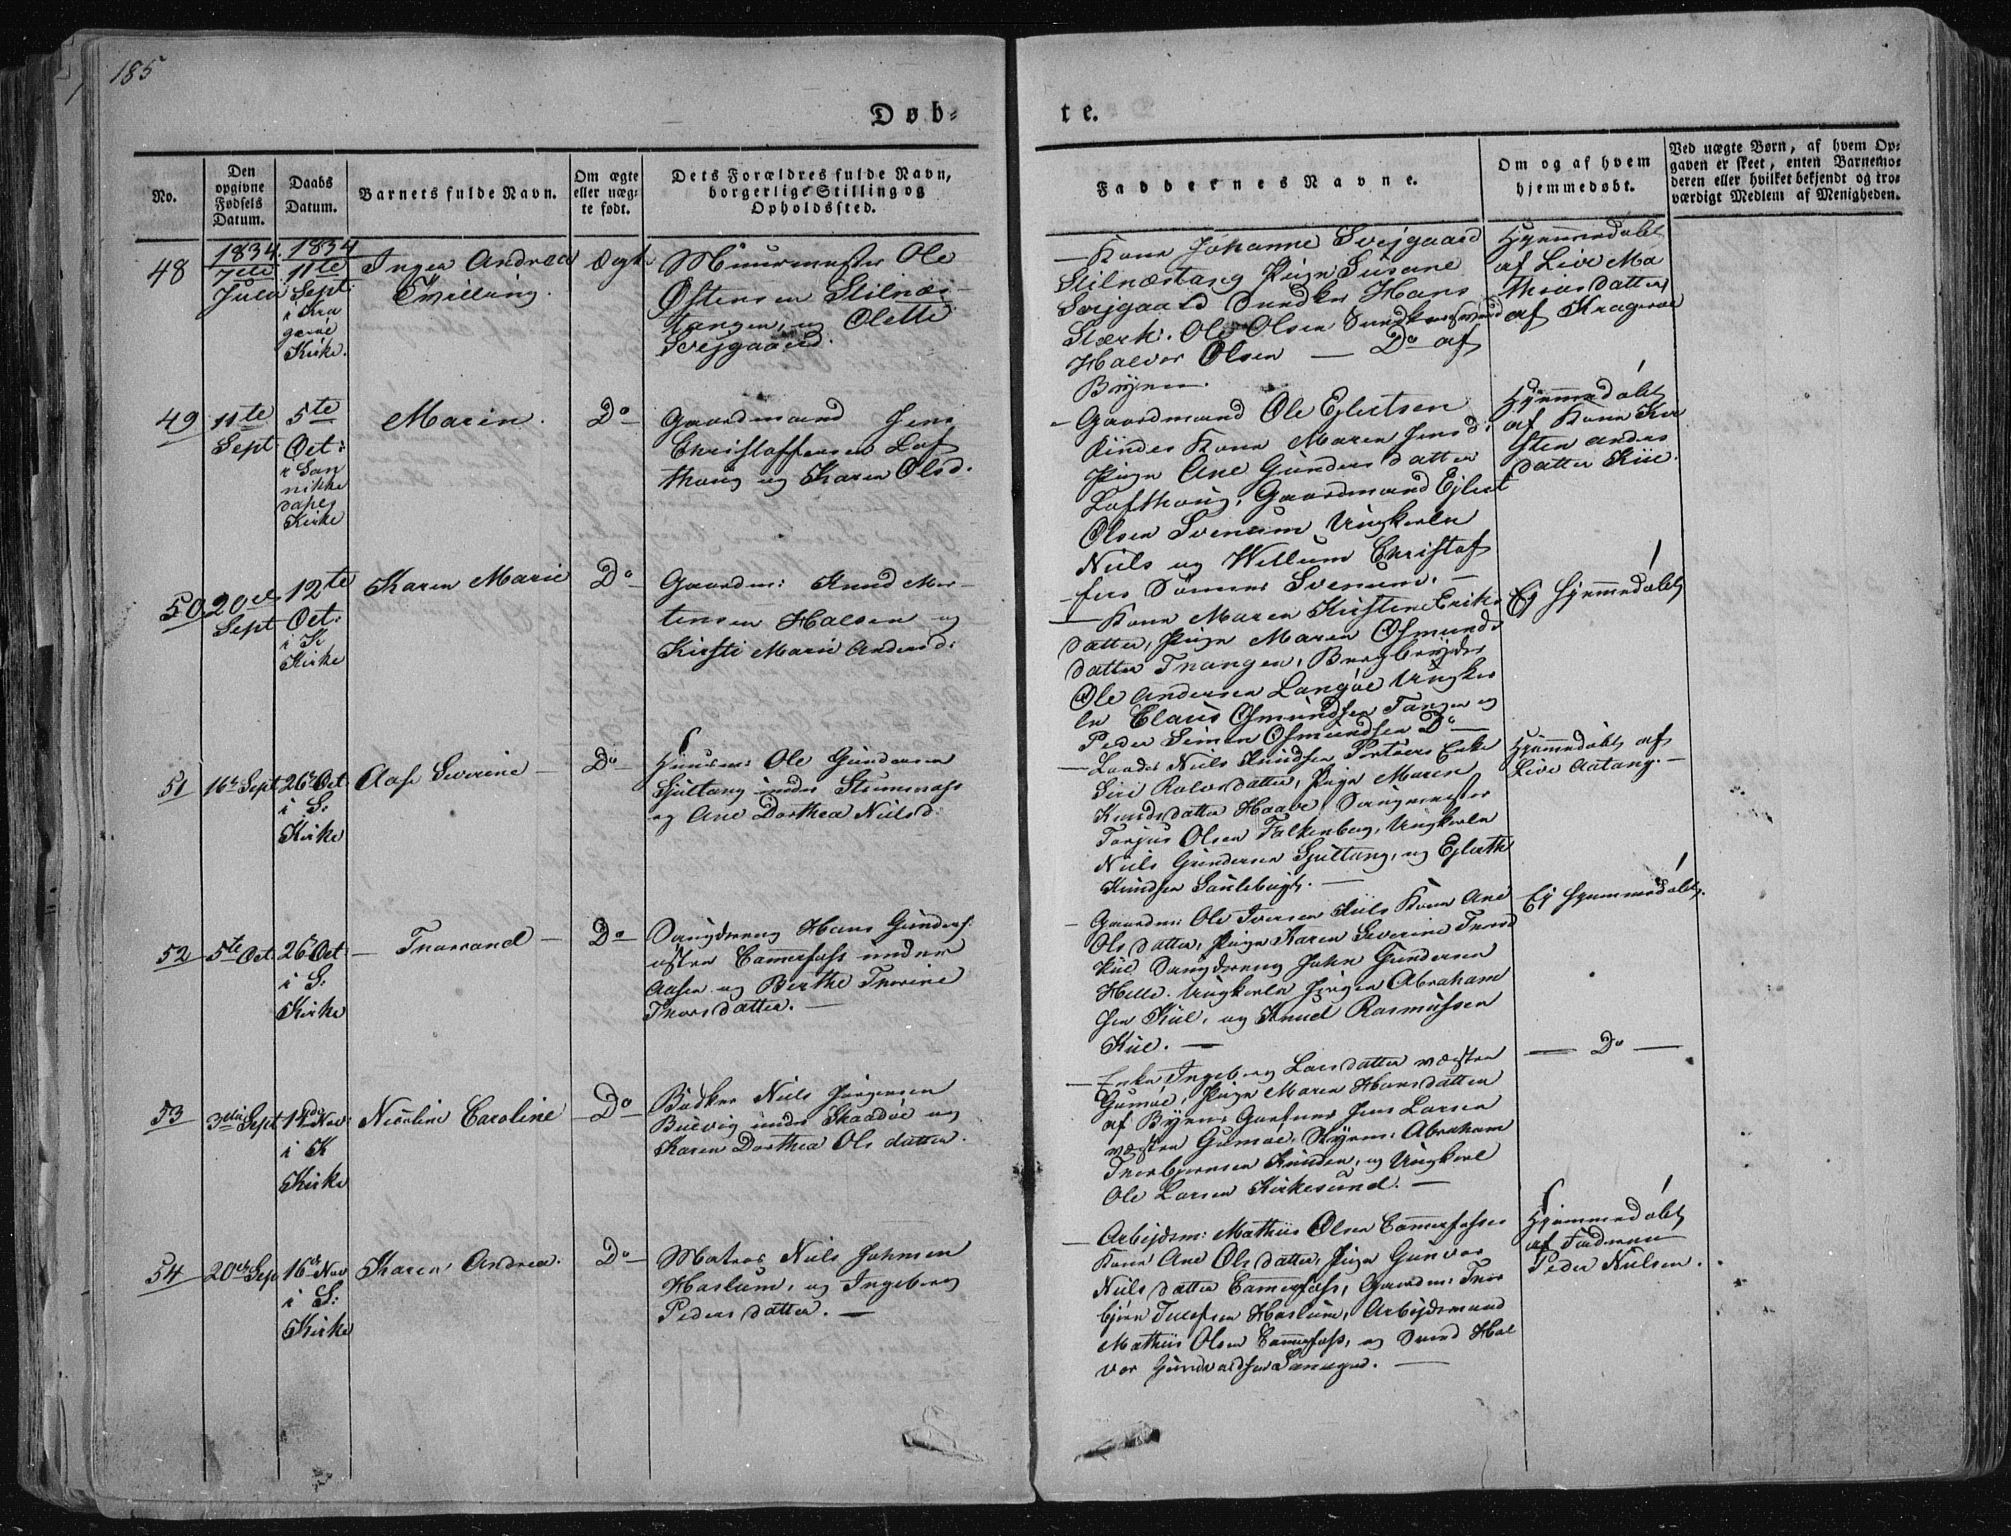 185
Døb-
te.
No.
Den
opgivne
Fødsels
Datum.
Daabs
Datum.
Barnets fulde Navn.
Om ægte
eller uæg-
te født.
Dets Forældres fulde Navn,
borgerlige Stilling og
Opholdssted.
Faddernes Navne.
Om og af hvem
hjemmedøbt.
Ved uægte Børn, af hvem Op-
gaven er skeet, enten Barnemo-
deren eller hvilket bekjendt og tro-
værdigt Medlem af Menigheden.
48
1834.
7de
Julii
1834
11te
Sept:
i Kra
gerøe
Kirke.
Inger Andrea
Tvilling.
Ægte
Muurmester Ole
Østensen Stilnæs-
tangen, og Olette
Svejgaard.
Kone Johanne Svejgaard
Stilnæstang Pige Susane
Svejgaard Snedker Hans
Stærk. Ole Olsen
Halvor Olsen — Do af
Byen.
Hjemmedøbt
af Live Ma
thiasdatter
af Kragerøe
49
11te
Sept
5te
Oct:
i San
nikke
dahls
Kirke
Maren.
Do
Gaardmand Jens
Christoffersen Lof
thoug og Karen Olsd.
Gaardmand Ole Ejlertsen
Kindes Kone Maren Jensd:
Pige Ane Gundersdatter
Lofthoug, Gaardmand Ejlert
Olsen Svenum Ungkarle
Niels og Willum Christof
fers Sønner Svenum. —
Hjemmedøbt
af Kone Kir
sten Anders
datter Kiil.
50
20de
Sept
12te
Oct:
i K
Kirke
Karen Marie
Do
Gaardm: Knud Mor-
tensen Halsen og
Kirsti Marie Andersd:
— Kone Maren Kirstine Eriks
datter, Pige Maren Osmunds
datter Tangen,
Ole Andersen Langøe Ungkar
le Claus Osmundsen Tangen og
Peder Simen Osmundsen Do —
Ej Hjemmedøbt
51
16de Sept
26de Oct
i S:
Kirke
Aase Severine —
Do
Huusm: Ole Gundersen
Spiltang under Stumnæss
og Ane Dorthea Nielsd:
— Niels Knudsen Portøers Enke
Siri Rolvsdatter, Pige Maren
Knudsdatter Haave,
Torjus Olsen Falkenberg, Ungkarle
Niels Gundersen Spiltang, og Ejlerth
Knudsen Saulebugt. —
Hjemmedøbt af
Live Aatang. —
52
5te Oct
26de Oct
i S:
Kirke
— Thorvand —
Do
Hans Gunders:
østre Camerfoss under
Aasen og Berthe Thorine
Thorsdatter. —
Gaardm: Ole Iversen Kiils Kone Ane
Olsdatter, Pige Karen Severine Thors
Kiil John Gundersen
Helle. Ungkarle Jørgen Abraham
sen Kiil, og Knud Rasmussen
Kiil. —
Ej Hjemmedøbt.
53
3die Sept
14de Nov
i K
Kirke
Nicoline Caroline
Do
Bødker Niels Jørgensen
Buevig under Skaadøe og
Karen Dorthea Olsdatter.
— Enke Ingeborg Larsdatter væstre
Gumøe, Pige Maren Hansdatter
af Byen, Gartner Jens Larsen
væstre Gumøe, Styrm: Abraham
Thorbjørnsen Kinden, og Ungkarl
Ole Larsen Kirkesund. —
— Do —
54
20de Sep
16de Nov
i S:
Kirke
Karen Andrea.
Do
Matros Niels Johnsen
Haslum, og Ingeborg
Pedersdatter. —
— Arbejdsm: Mathiis Olsen Camerfosses
Kone Ane Olsdatter, Pige Gunvor
Nielsdatter Camerfoss, Gaardm: Thor
bjørn Tollefsen Haslum, Arbejdsmand
Mathiis Olsen Camerfoss, og Dreng Hal
vor Gundvaldsen
Hjemmedøbt
af Faderen
Peder Nielsen.